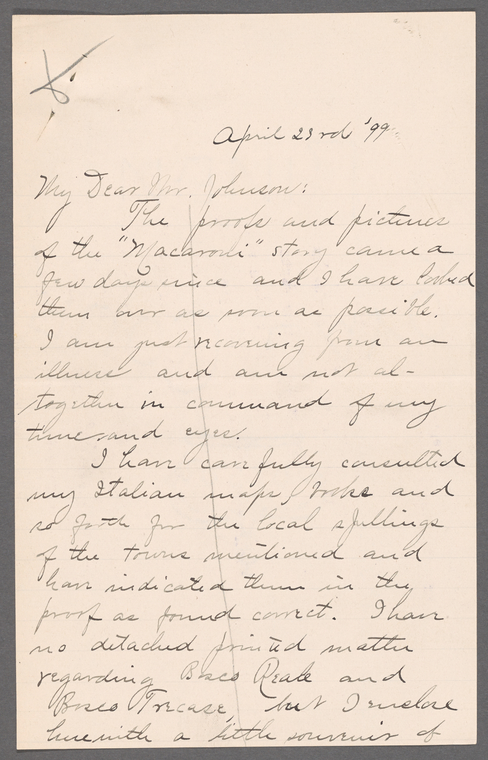 April 23rd '99.
My Dear Mr. Johnson:
The proofs and pictures
of the "Macaroni" story came a
few days since and I have looked
them over as soon as possible.
I am just recovering from an
illness and am not al-
together in command of my
time and eyes.
I have carefully consulted
my Italian maps, books and
so forth for the local spellings
of the towns mentioned and
have indicated them in the
proof as found correct. I have
no detached printed matter
regarding Bosco Reale and
Bosco Trecase, but I enclose
herewith a little souvenir of